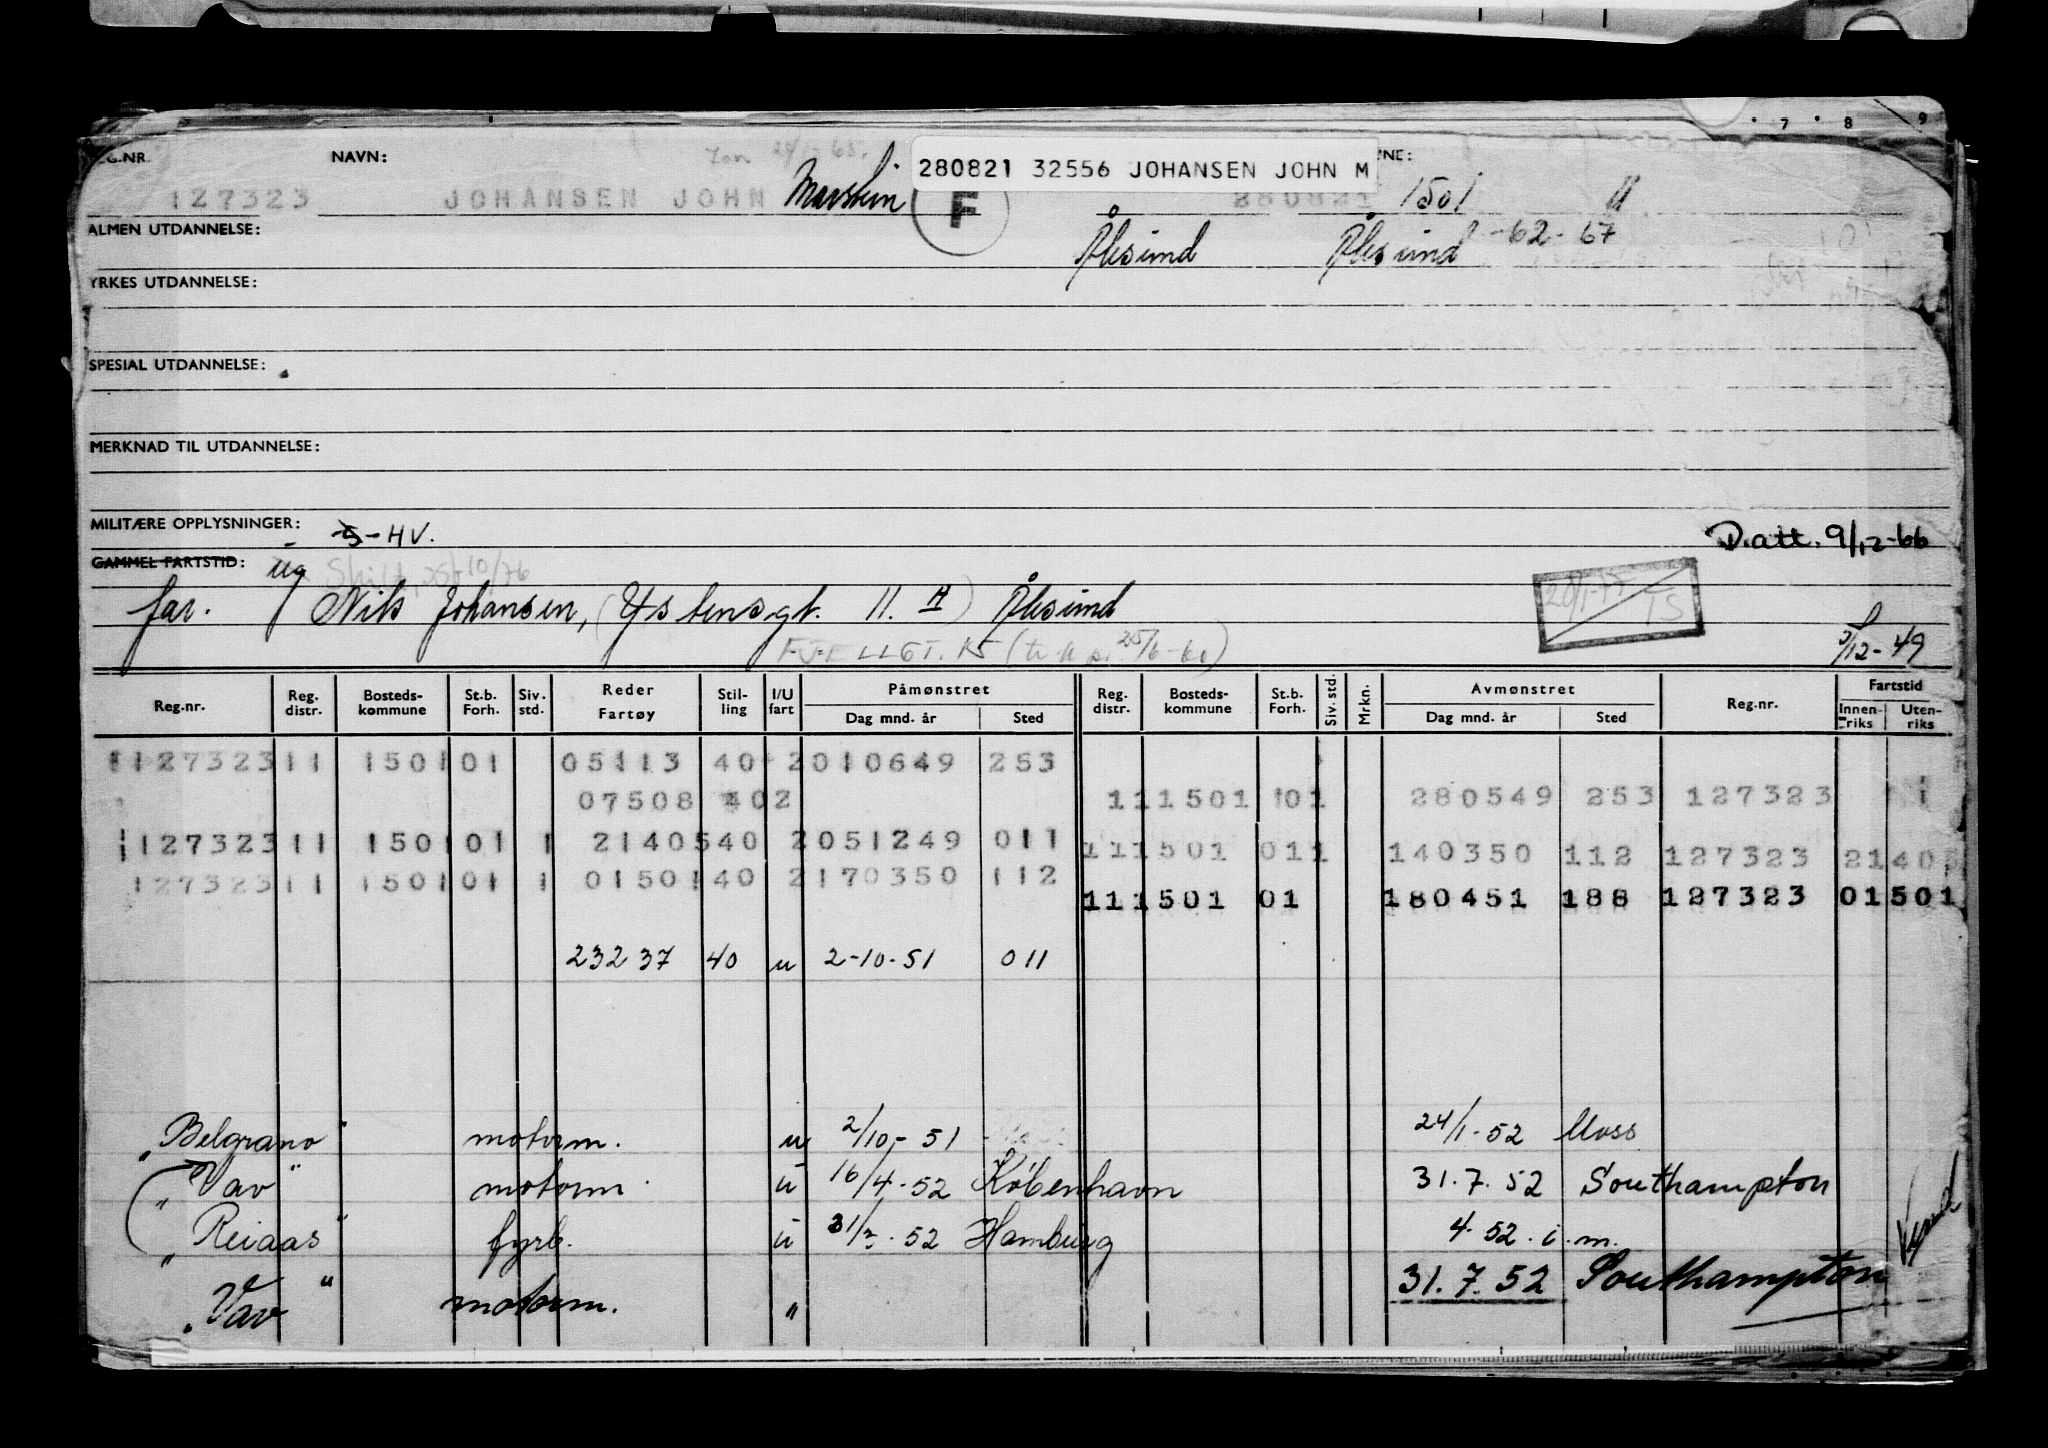 7 8 9
G.NR. NAVN: 280821 32556 JOHANSEN JOHN M NE:
127323 JOHANSEN JOHN F 280821 1501 U
ALMEN UTDANNELSE: Ålesund Ålesund -62-67
YRKES UTDANNELSE:
SPESIAL UTDANNELSE:
MERKNAD TIL UTDANNELSE:
MILITÆRE OPPLYSNINGER: HV. D.att. 9/12-66
GAMMEL FARTSTID: ug
far. Nils Johansen, (Ystensgt. 11.A) Ålesund
FJELLGT. 15
3/12-49
Reg.nr. Reg. distr. Bosteds-kommune St.b. Forh. Siv. std. Reder Fartøy Stil-ling I/U fart Påmønstret Dag mnd. år Sted Reg. distr. Bosteds-kommune St.b. Forh. Siv. std. Mrkn. Avmønstret Dag mnd. år Sted Reg.nr. Fartstid Innen-riks Uten-riks
127323 11 1501 01 05113 40 2 010649 253
07508 402 11 1501 01 280549 253 127323 1
127323 11 1501 01 1 21405 40 2 051249 011
11 1501 01 1 140350 112 127323 21405
127323 11 1501 01 1 01501 40 2 170350 112
11 1501 01 180451 188 127323 01501
23237 40 u 2-10-51 011
"Belgrano" motorm. u 2/10-51 24/1-52 Moss
"Vav" motorm. u 16/4-52 København 31.7.52 Southampton
"Reiaas" fyrb. u 31/3-52 Hamburg 4-52 i.m.
"Vav" motorm. " 31.7.52 Southampton